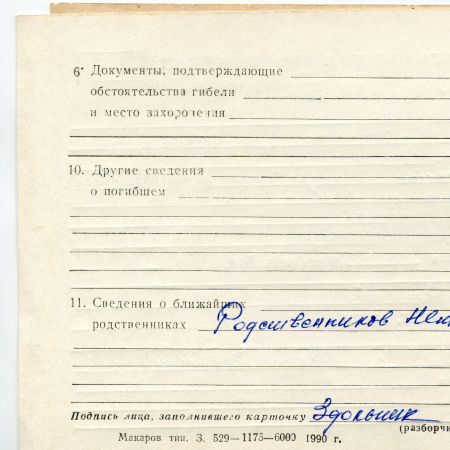 6· Документы, подтверждающие
обстоятельства гибели
и место захоронения
10. Другие сведения
о погибшем
11. Сведения о ближайших
родственниках Родственников
Подпись лица, заполнившего карточку Здольник
(разборчи
Макаров тип. З. 529—1175—6000 1990 г.